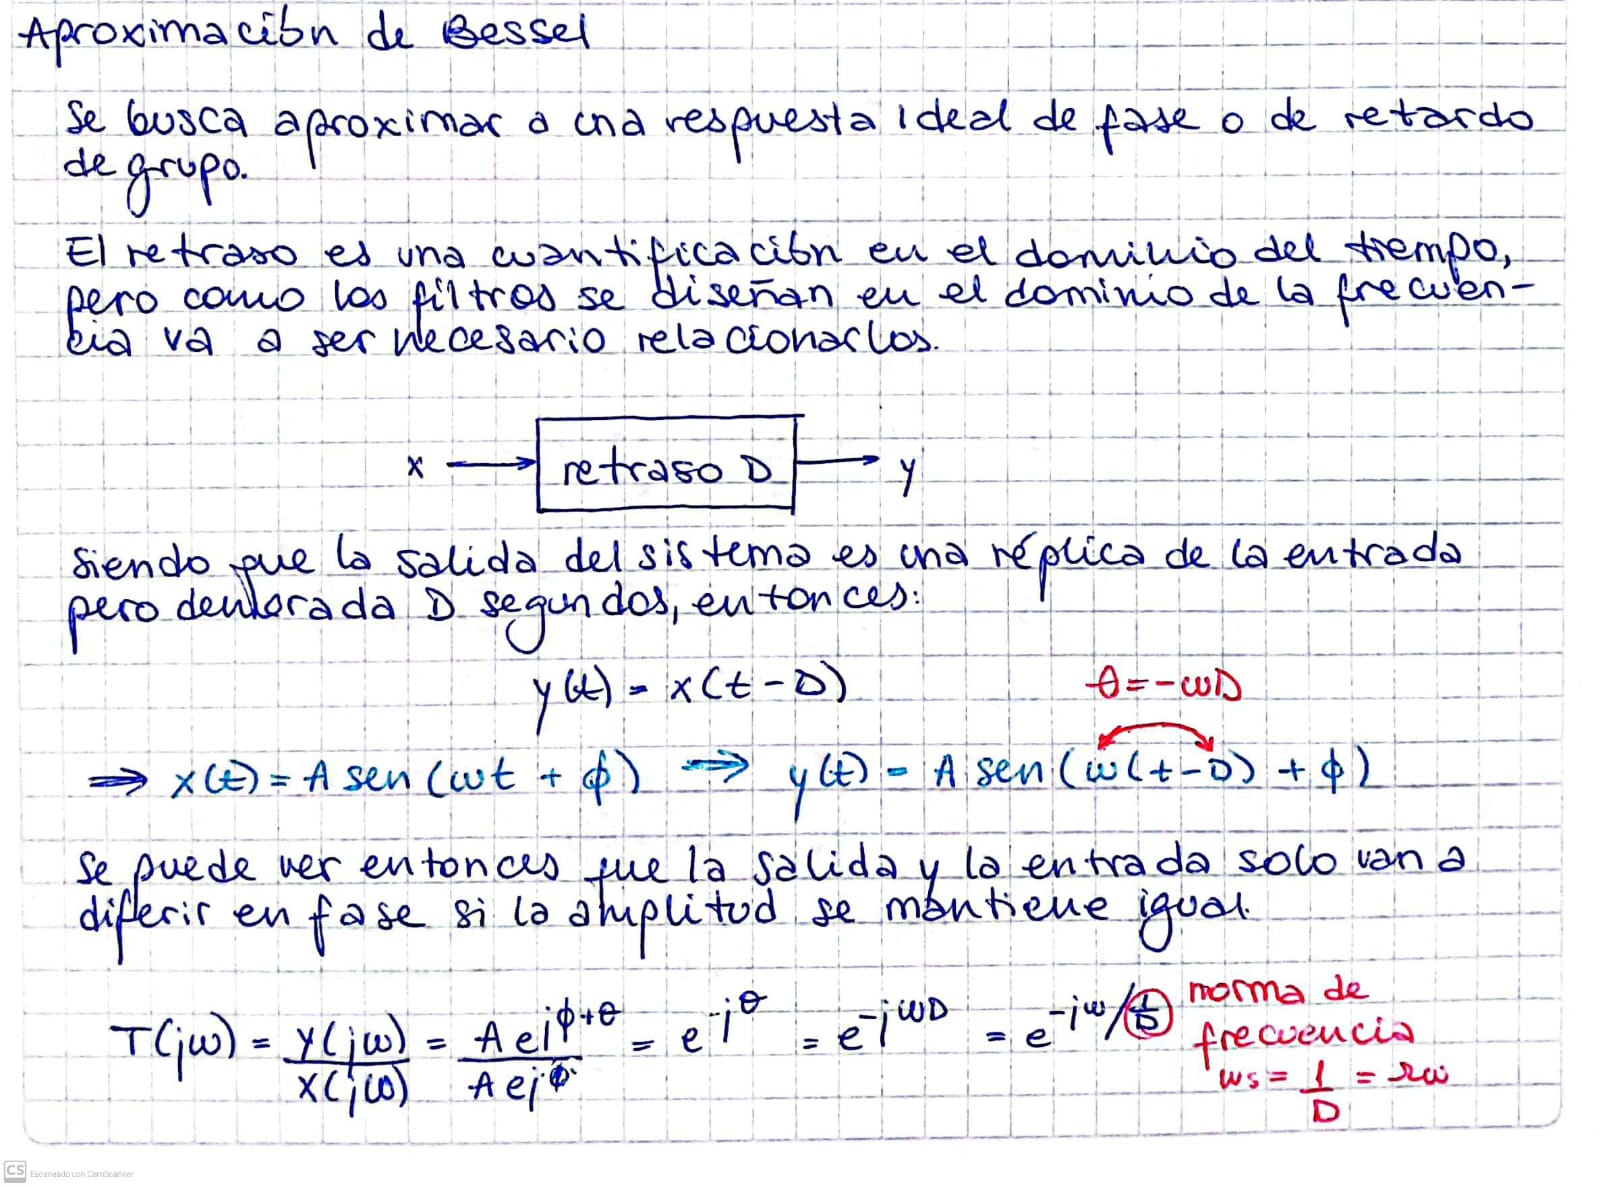 Aproximación de Bessel
Se busca aproximar a una respuesta ideal de fase o de retardo
de grupo.
El retraso es una cuantificación en el dominio del tiempo,
pero como los filtros se diseñan en el dominio de la frecuen-
cia va a ser necesario relacionarlos.
x → retraso D → y
Siendo que la salida del sistema es una réplica de la entrada
pero demorada D segundos, entonces:
y(t) = x(t-D)
θ = -ωD
⇒ x(t) = A sen (ωt + ϕ) ⇒ y(t) = A sen (ω(t-D) + ϕ)
Se puede ver entonces que la salida y la entrada solo van a
diferir en fase si la amplitud se mantiene igual.
T(jω) = Y(jω)/X(jω) = A e^jϕ+θ / A e^jϕ = e^-jθ = e^-jωD = e^-jω/(1/D)
norma de
frecuencia
ωs = 1/D = Ωω
CS Escaneado con CamScanner